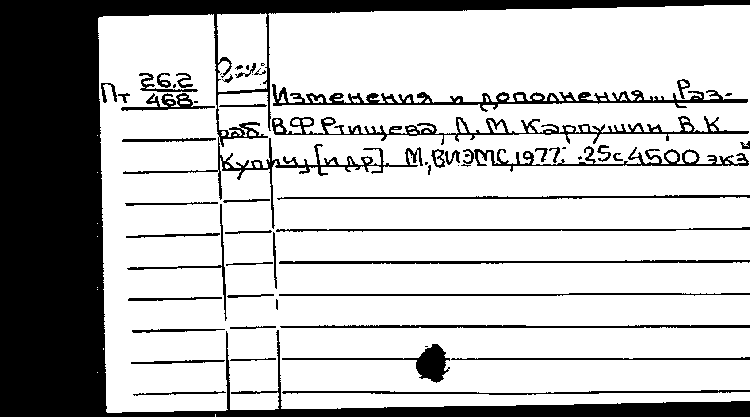 Пт 26.2
468. Изменения и дополнения... [Раз-
раб. В.Ф. Ртищева, Л.М. Карпушин, В.К.
Купич] [и др]. М., ВИЭМС, 1977. 25с. 4500 экз